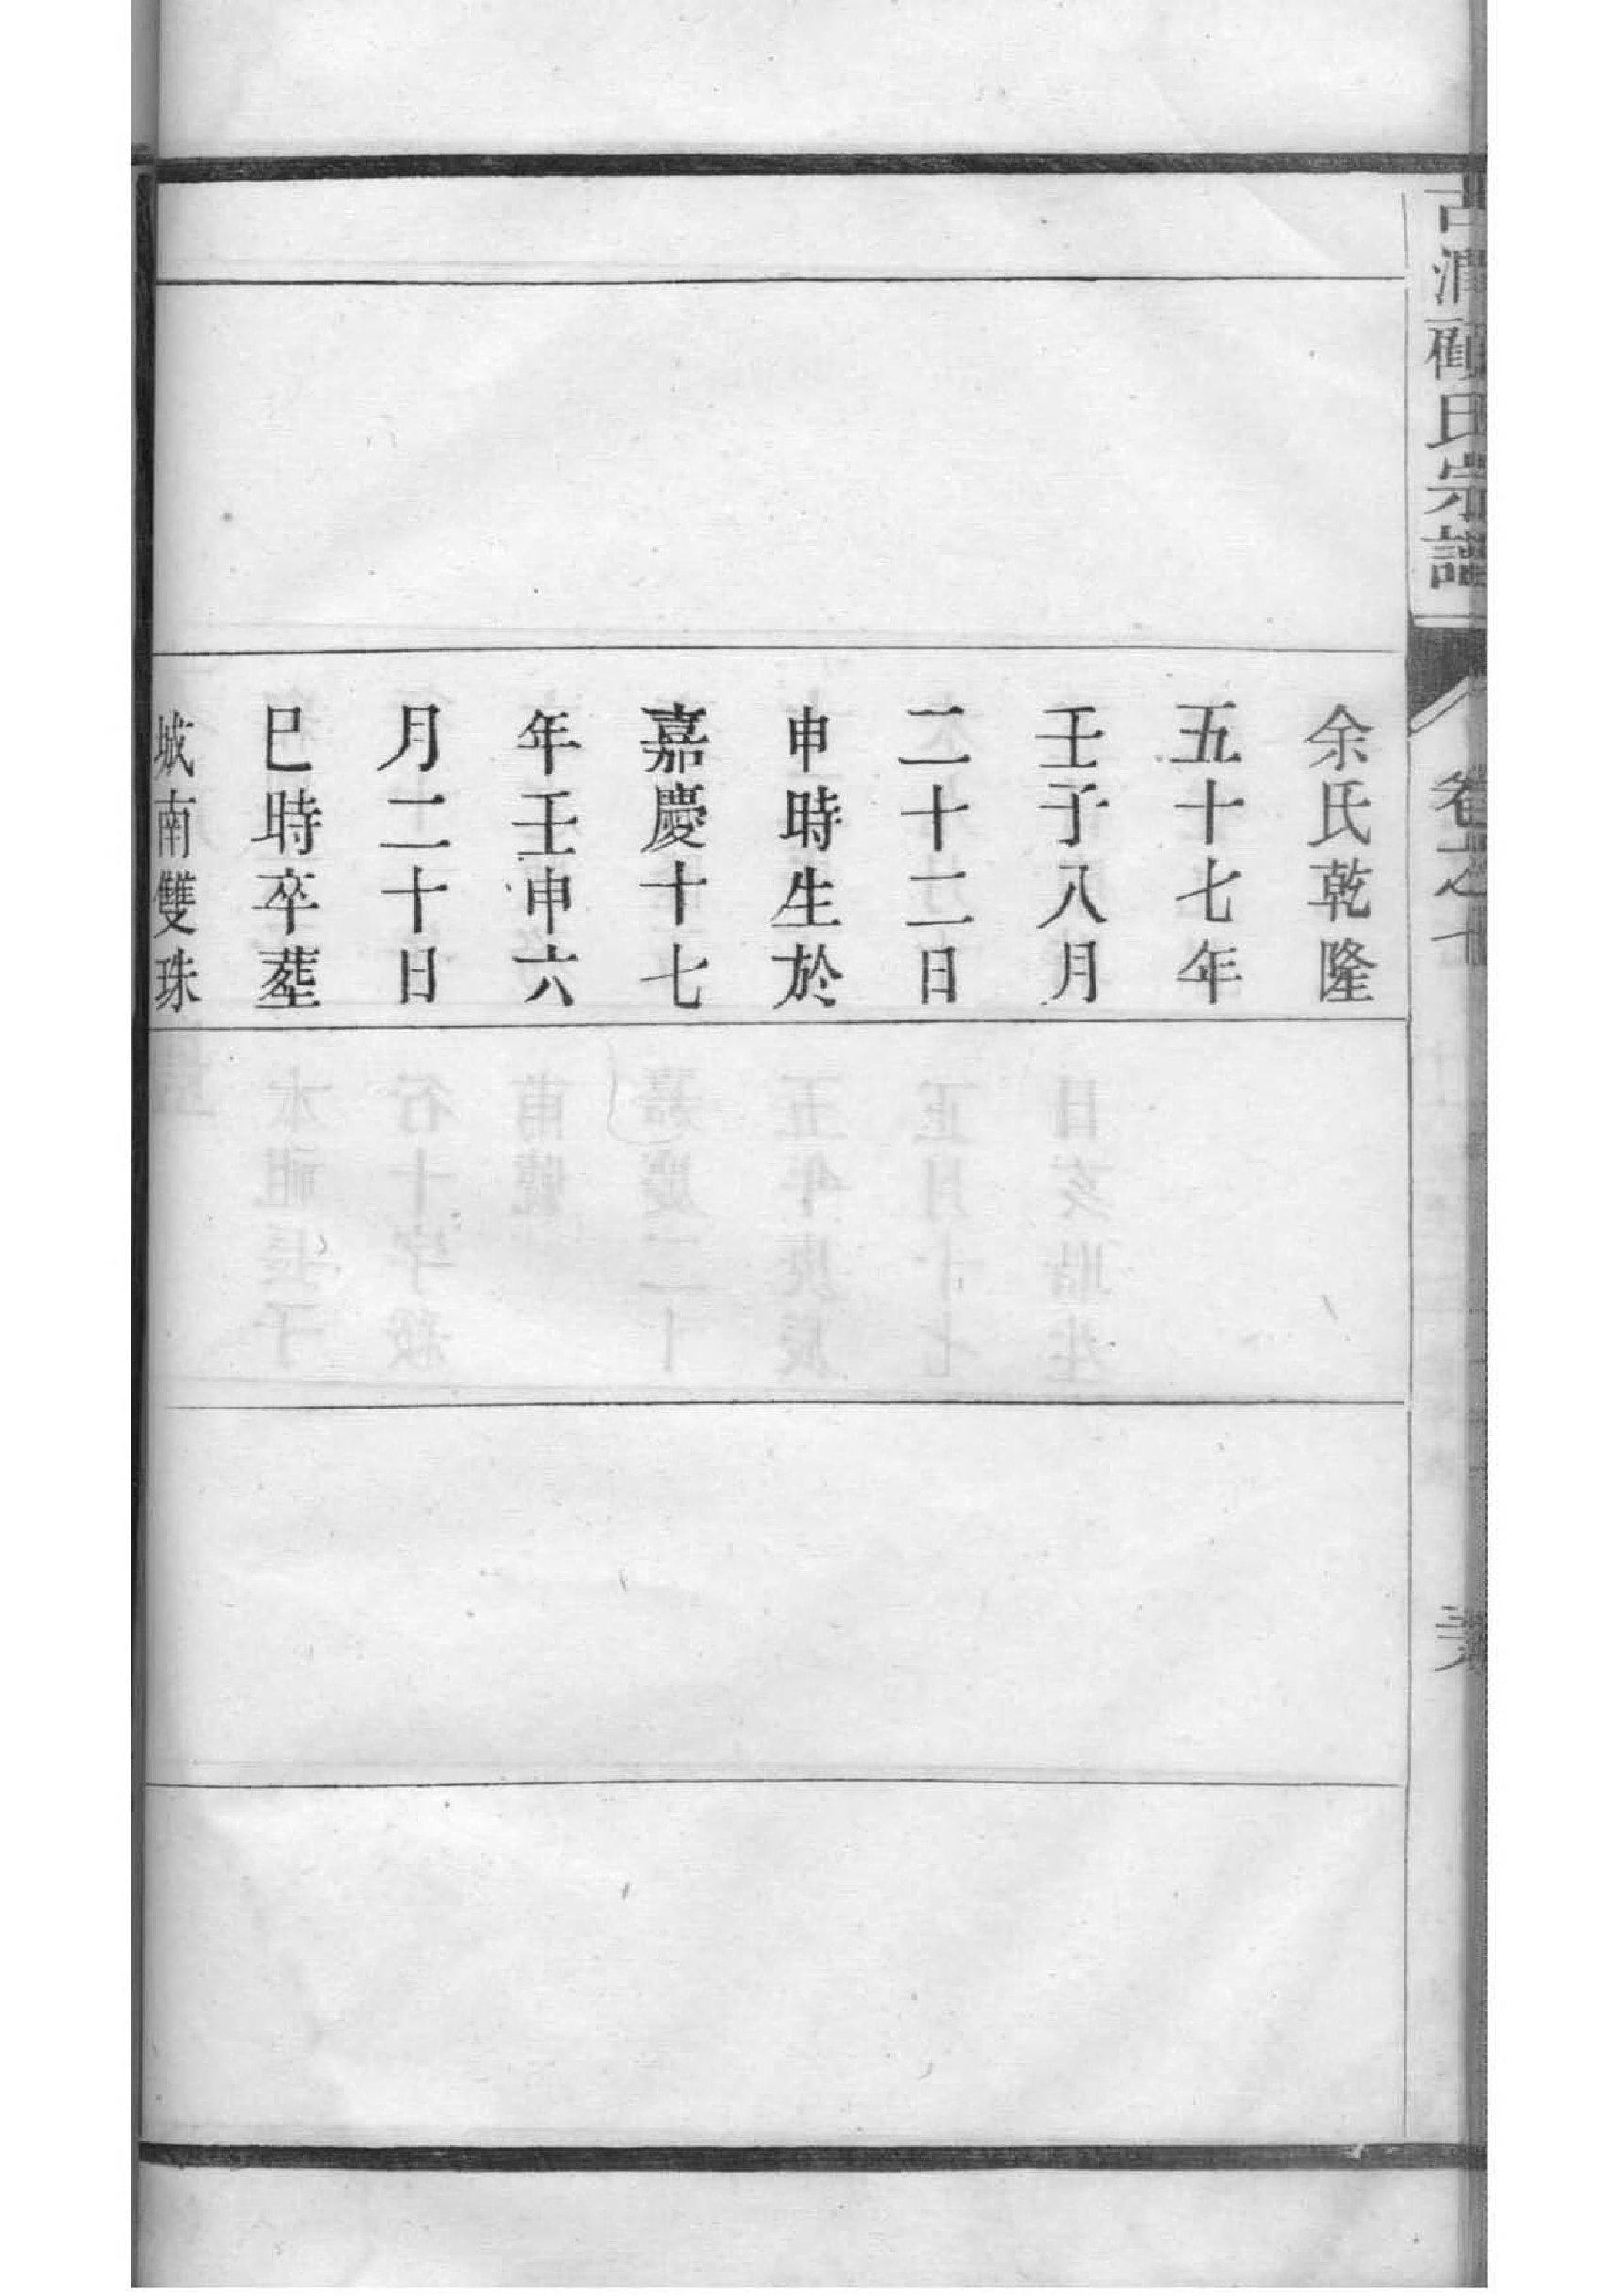 古潤顧氏宗譜
卷之七
余氏乾隆
五十七年
壬子八月
二十二日
申時生於
嘉慶十七
年壬申六
月二十日
巳時卒葬
城南雙珠